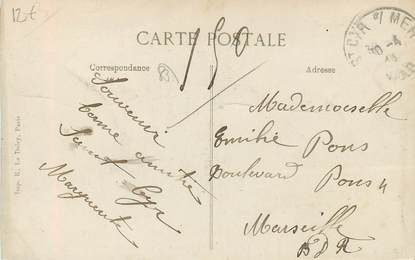 12€
CARTE POSTALE
Correspondance
Adresse
150
85
ST CYR S/ MER
30 -4
VAR
Souvenir
bonne amitié
Saint Cyr
Marguerite
Mademoiselle
Emilie Pons
Boulevard Pons 4
Marseille
B D R
Imp. E. Le Deley, Paris